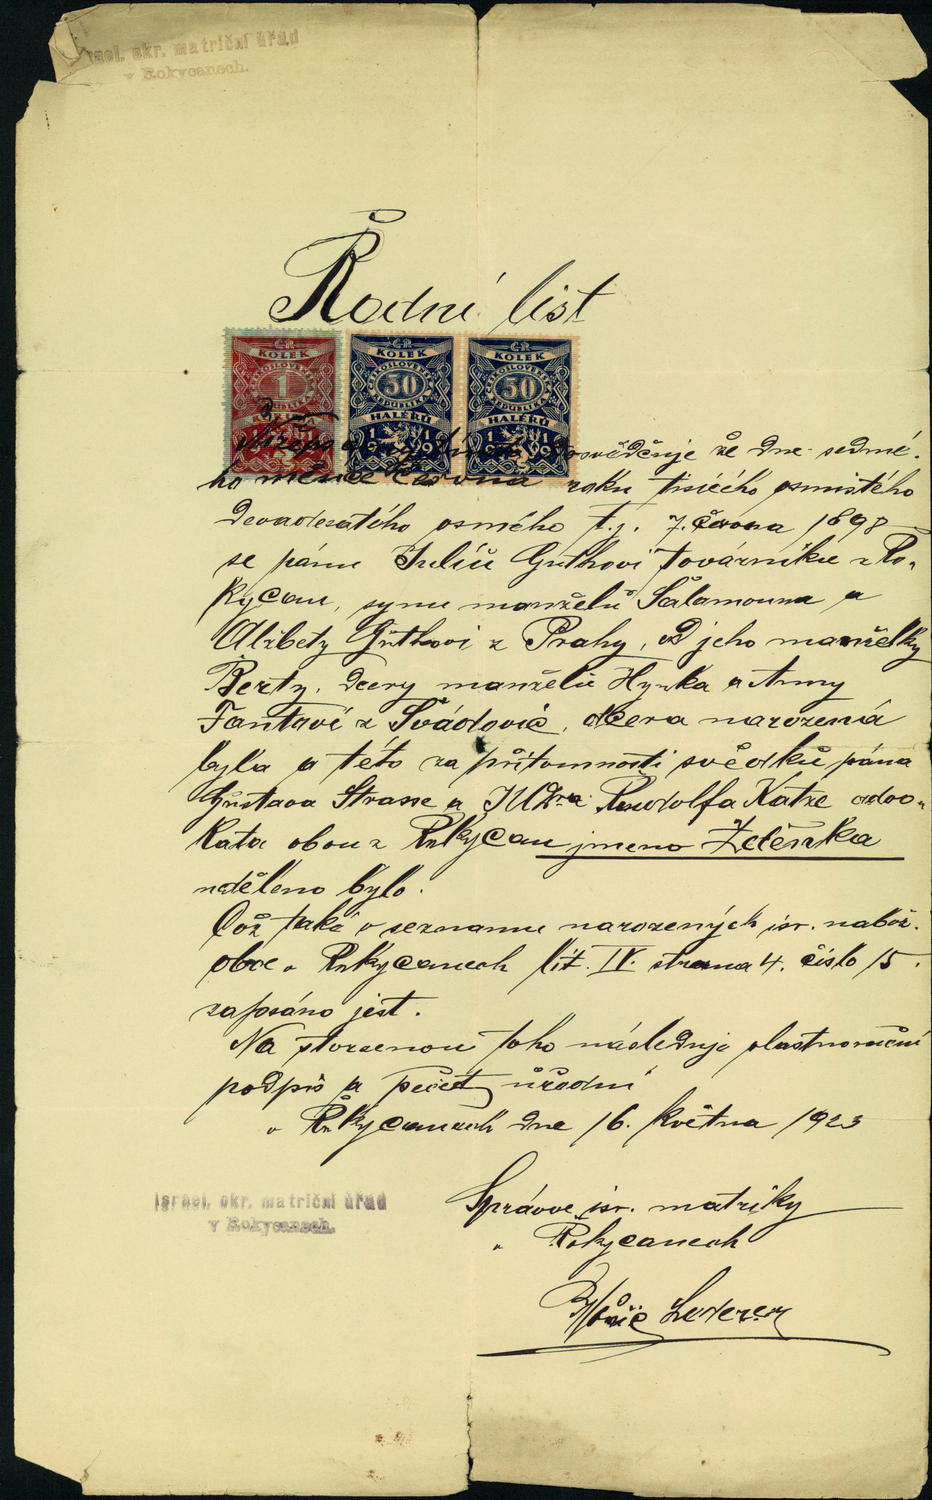 Israel. okr. matriční úřad
v Rokycanech.
Rodní list
ČR ČR ČR
KOLEK KOLEK KOLEK
ČESKOSLOVENSKÁ ČESKOSLOVENSKÁ ČESKOSLOVENSKÁ
1 50 50
REPUBLIKA REPUBLIKA REPUBLIKA
HALÉŘŮ HALÉŘŮ
1919 1919
osvědčuje že dne sedmé-
ho měsíce června roku tisícého osmistého
devadesátého osmého t.j. 7. června 1898
se pánu Juliu Guthovi továrníku z Ro-
kycan, synu manželů Šalamouna a
Alžbety Guthovi z Prahy, od jeho manželky
Berty, dcery manželů Hynka a Anny
Fantovi z Svádovic, dcera narozená
byla a této za přítomnosti svědků pána
Gustava Strasse a JUDra Rudolfa Katze advo-
kata obou z Rokycan jmeno Zdeňka
uděleno bylo.
Což také v seznamu narozených isr. nábož.
obce v Rokycanech lit. IV. strana 4. číslo 15.
zapsáno jest.
Na stvrzenou toho následuje vlastnoruční
podpis a pečeť úřadní
v Rokycanech dne 16. května 1923
Israel. okr. matriční úřad
v Rokycanech.
Správce isr. matriky
v Rokycanech
Lederer